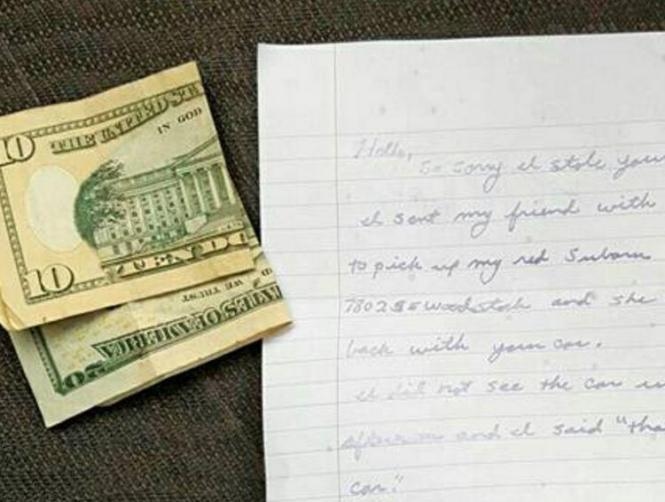 10
THE UNITED ST
IN GOD
10
TEN DO
WE TRUST
ATES OF AMERICA
20
Hello,
So sorry I stole your
I sent my friend with
to pick up my red Subaru
7802 SE Woodstock and she
back with your car.
I did not see the car
afternoon and I said "tha
car."